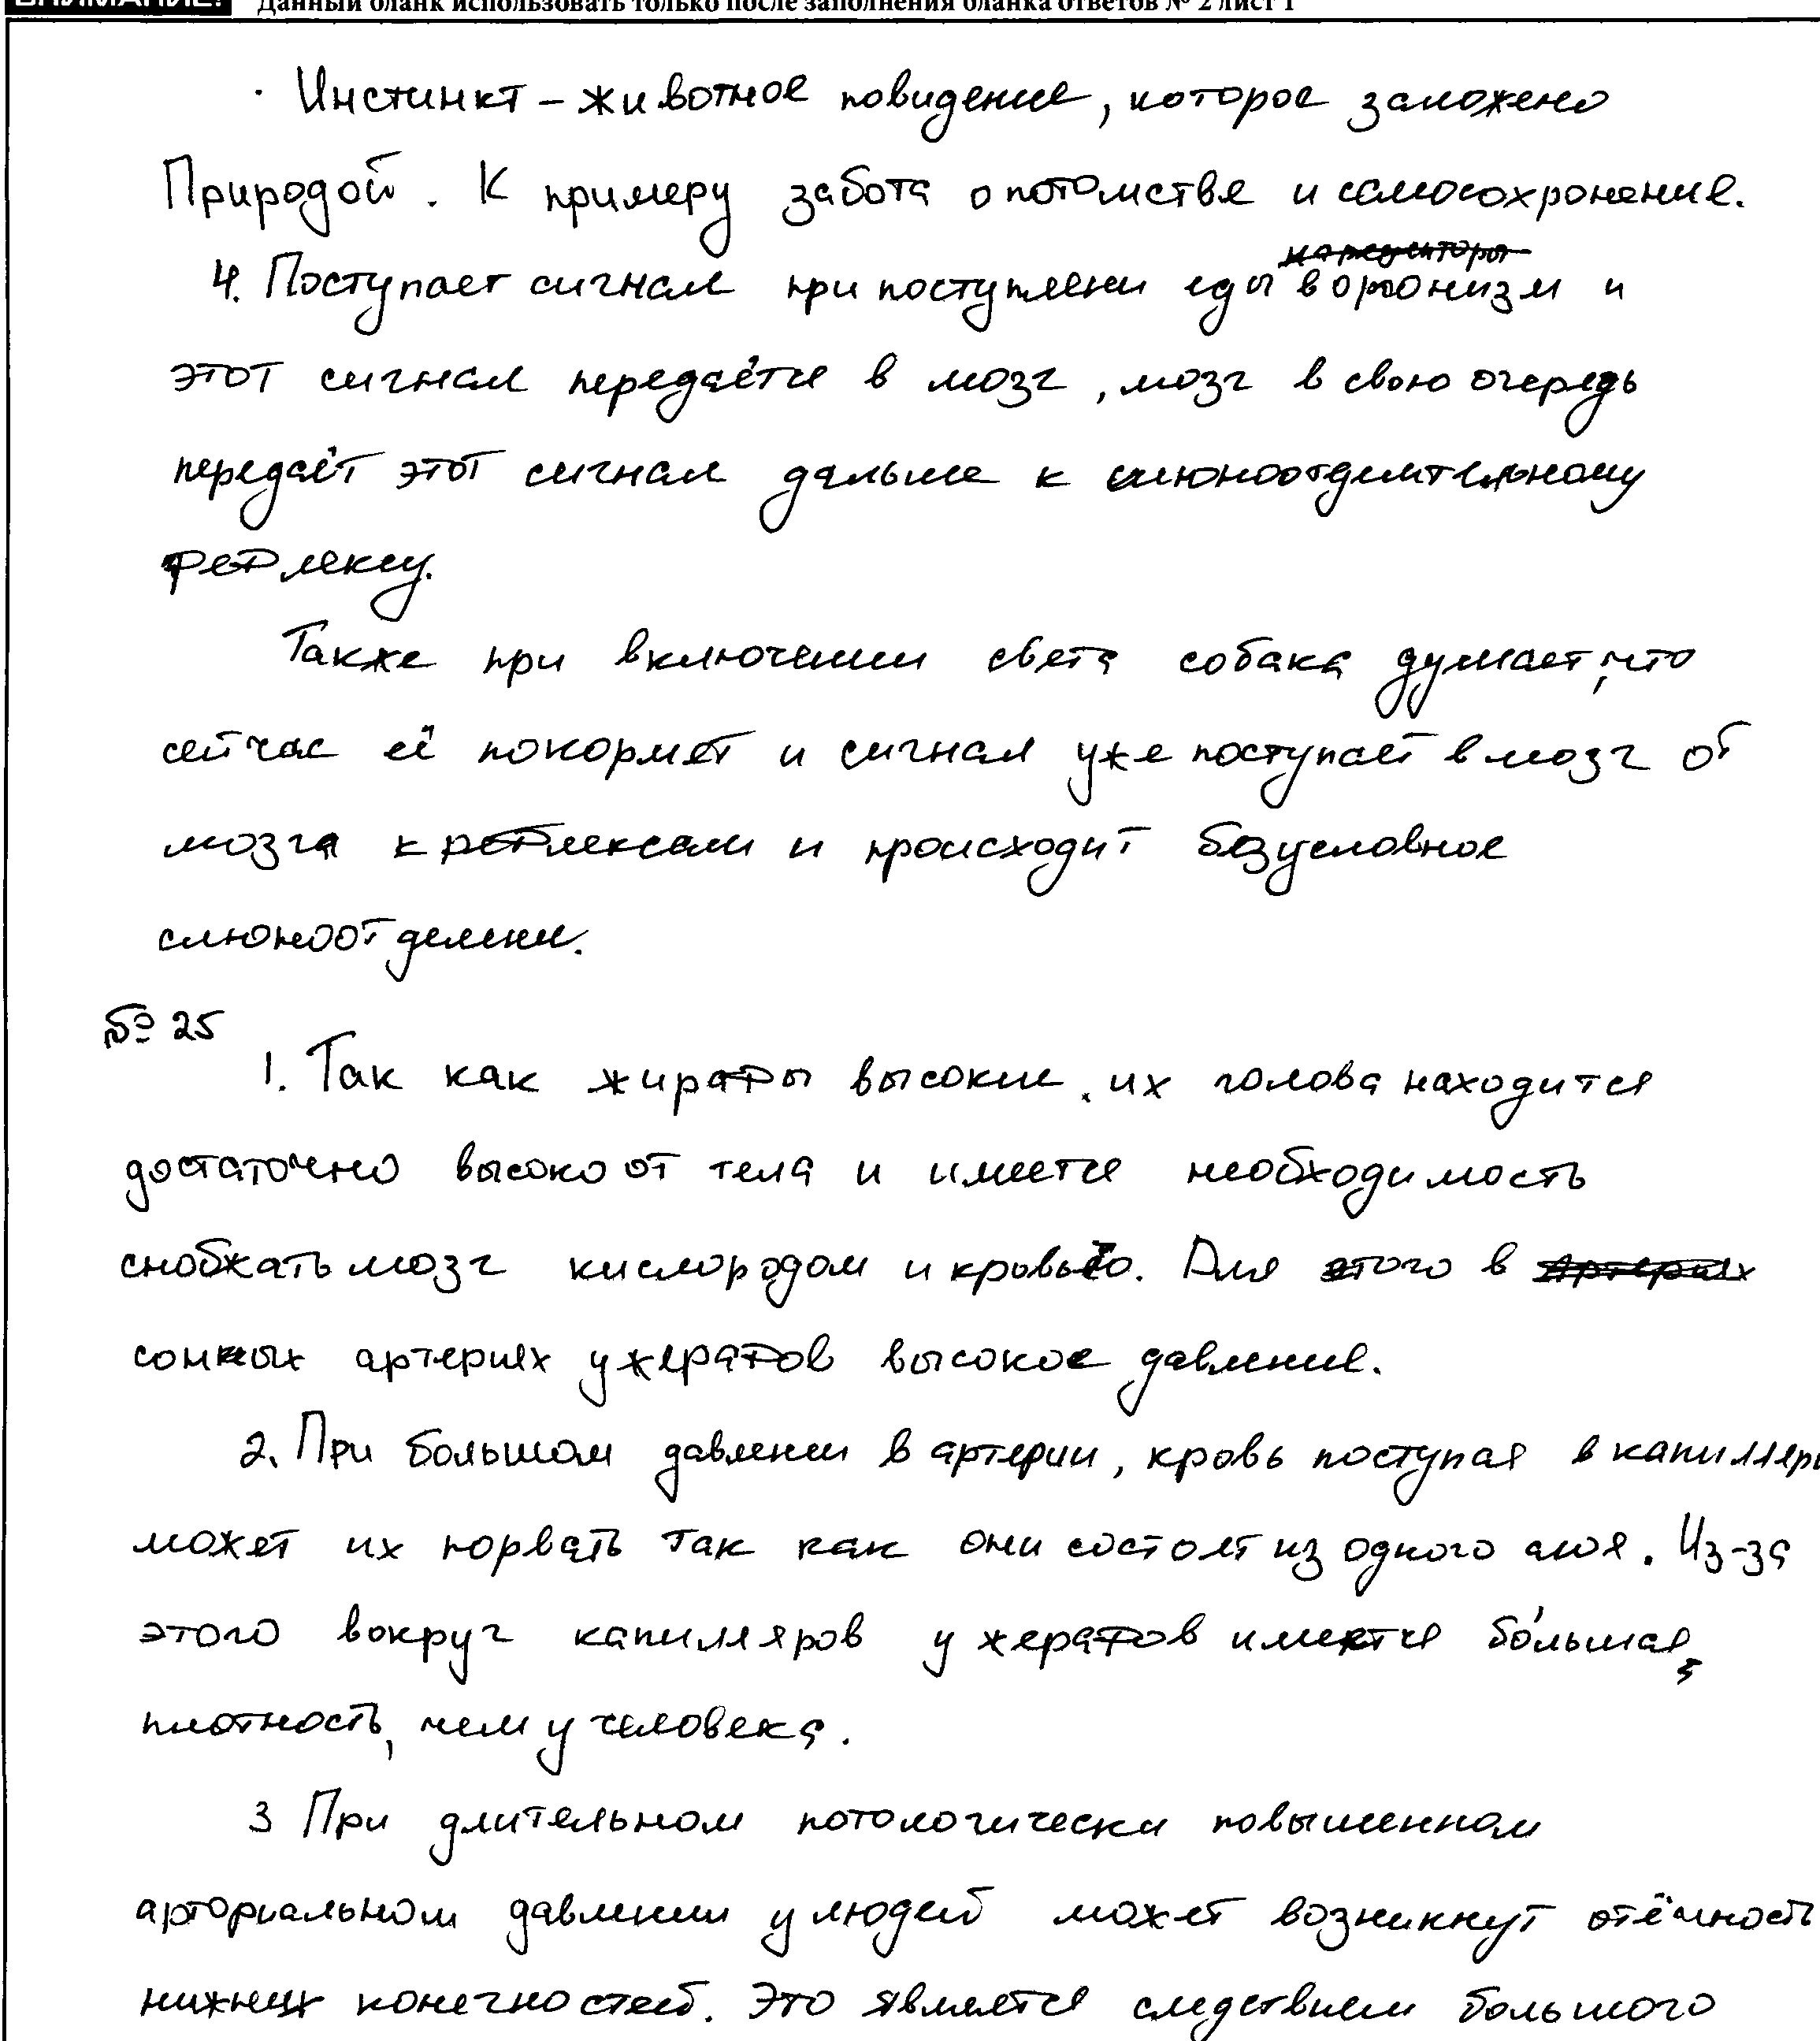 ВНИМАНИЕ! Данный бланк использовать только после заполнения бланка ответов № 2 лист 1
· Инстинкт – животное повидение, которое заложено
Природой. К примеру забота о потомстве и самосохронение.
4. Поступает сигнал при поступлени еды в оргонизм и
этот сигнал передаётся в мозг, мозг в свою очередь
передаёт этот сигнал дальше к слюноотделительному
рефлексу.
Также при включении света собака думает, что
сейчас её покормят и сигнал уже поступает в мозг от
мозга к рефлексам и происходит безусловное
слюноотделени.
№ 25
1. Так как жирафы высокие, их голова находится
достаточно высоко от тела и имеется необходимость
снобжать мозг кислородом и кровью. Для этого в
сонных артериях у жерафов высокое давление.
2. При большом давлении в артерии, кровь поступая в капилляры
может их порвать так как они состоят из одного слоя. Из-за
этого вокруг капилляров у жерафов имеется бо́льшая
плотность, чем у человека.
3 При длительном потологически повышенном
арториальном давлении у людей может возникнут отёчность
нижних конечностей. Это является следствием большого